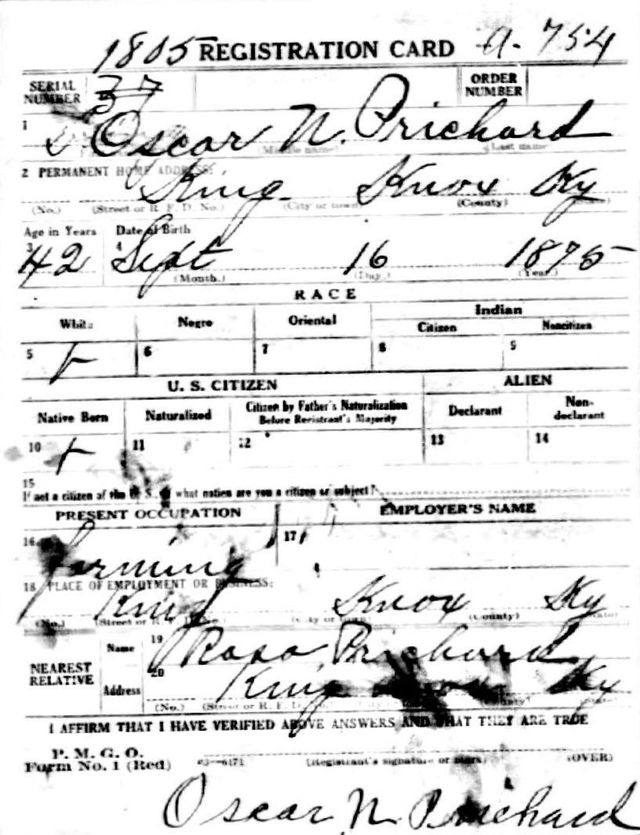 1805 REGISTRATION CARD A-754
SERIAL NUMBER 37 ORDER NUMBER
1 Oscar N. Prichard
(Middle name) (Last name)
2 PERMANENT HOME ADDRESS:
King Knox Ky
(No.) (Street or R. F. D. No.) (City or town) (County) (State)
Age in Years Date of Birth
3 42 4 Sept 16 1875
(Month.) (Day.) (Year.)
RACE
White Negro Oriental Indian
Citizen Noncitizen
5 6 7 8 9
U. S. CITIZEN ALIEN
Native Born Naturalized Citizen by Father's Naturalization Before Registrant's Majority Declarant Non-declarant
10 11 12 13 14
15
If not a citizen of the U. S., of what nation are you a citizen or subject?
PRESENT OCCUPATION EMPLOYER'S NAME
16 farming 17
18 PLACE OF EMPLOYMENT OR BUSINESS:
King Knox Ky
(No.) (Street or R. F. D. No.) (City or town) (County) (State)
NEAREST RELATIVE Name 19 Rosa Prichard
Address 20 King Knox Ky
(No.) (Street or R. F. D. No.)
I AFFIRM THAT I HAVE VERIFIED ABOVE ANSWERS AND THAT THEY ARE TRUE
P. M. G. O.
Form No. 1 (Red) 03—6171 (Registrant's signature or mark) (OVER)
Oscar N Prichard